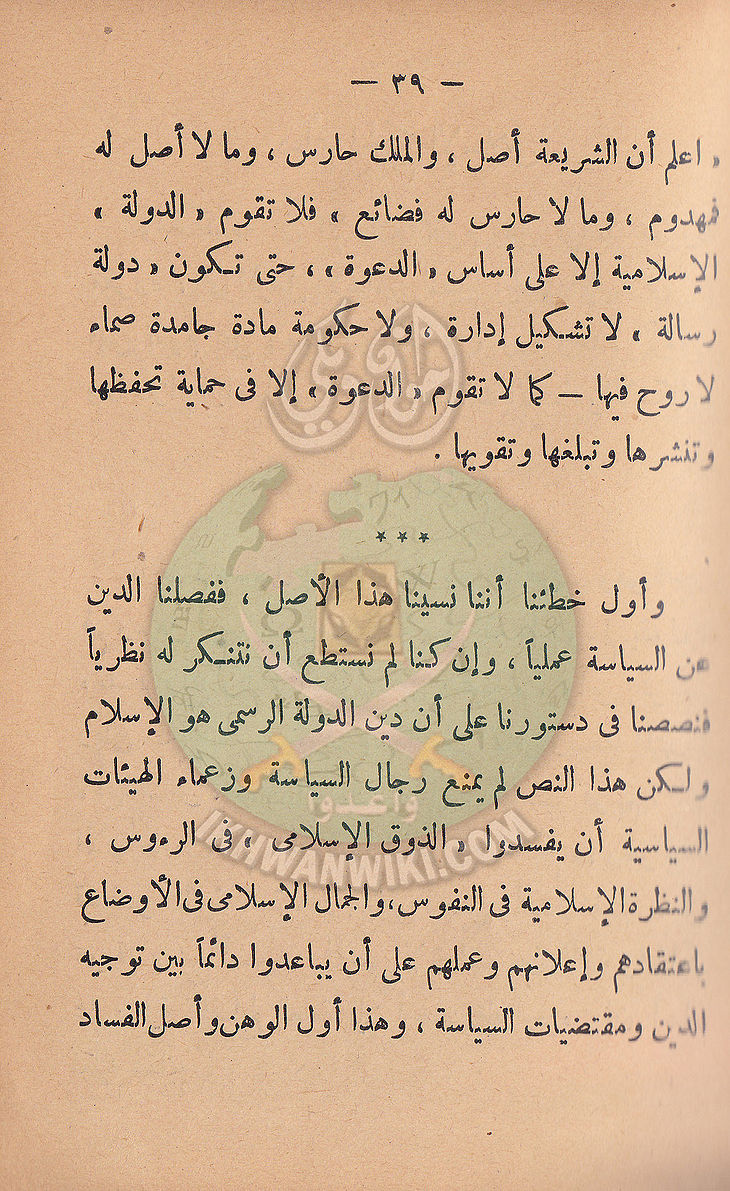 — ٣٩ —
« اعلم أن الشريعة أصل ، والملك حارس ، وما لا أصل له
فمهدوم ، وما لا حارس له فضائع » فلا تقوم « الدولة »
الإسلامية إلا على أساس « الدعوة » ، حتى تكون « دولة
رسالة » لا تشكيل إدارة ، ولا حكومة مادة جامدة صماء
لا روح فيها — كما لا تقوم « الدعوة » إلا فى حماية تحفظها
وتنشرها وتبلغها وتقويها .
* * *
وأول خطئنا أننا نسينا هذا الأصل ، ففصلنا الدين
عن السياسة عملياً ، وإن كنا لم نستطع أن نتنكر له نظرياً
فنصصنا فى دستورنا على أن دين الدولة الرسمى هو الإسلام
ولكن هذا النص لم يمنع رجال السياسة وزعماء الهيئات
السياسية أن يفسدوا « الذوق الإسلامى » فى الرءوس ،
والنظرة الإسلامية فى النفوس ، والجمال الإسلامى فى الأوضاع
باعتقادهم وإعلانهم وعملهم على أن يباعدوا دائماً بين توجيه
الدين ومقتضيات السياسة ، وهذا أول الوهن وأصل الفساد
وأعدوا
IKHWANWIKI.COM